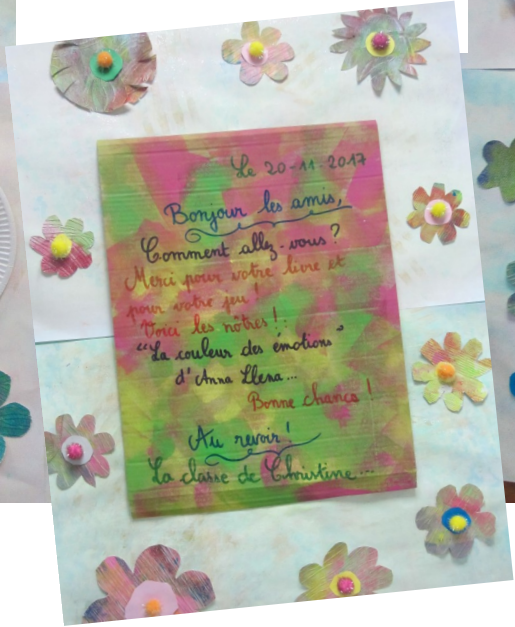 Le 20-11-2017
Bonjour les amis,
Comment allez-vous?
Merci pour votre livre et
pour votre jeu!
Voici les nôtres!.
"La couleur des émotions"
d'Anna Llena...
Bonne chance!
Au revoir!
La classe de Christine...